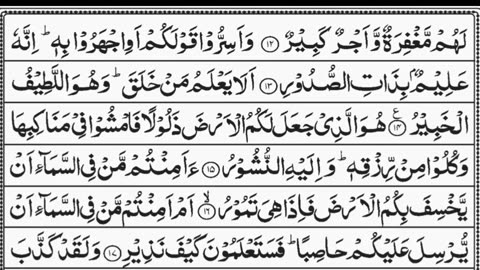 لَهُمْ مَّغْفِرَةٌ وَّاَجْرٌ كَبِيْرٌ ﴿۱۲﴾ وَاَسِرُّوْا قَوْلَكُمْ اَوِ اجْهَرُوْا بِهٖ ؕ اِنَّهٗ
عَلِيْمٌۢ بِذَاتِ الصُّدُوْرِ ﴿۱۳﴾ اَلَا يَعْلَمُ مَنْ خَلَقَ ؕ وَهُوَ اللَّطِيْفُ
الْخَبِيْرُ ﴿۱۴﴾ ع هُوَ الَّذِىْ جَعَلَ لَكُمُ الْاَرْضَ ذَلُوْلًا فَامْشُوْا فِىْ مَنَاكِبِهَا
وَكُلُوْا مِنْ رِّزْقِهٖ ؕ وَاِلَيْهِ النُّشُوْرُ ﴿۱۵﴾ ءَاَمِنْتُمْ مَّنْ فِى السَّمَآءِ اَنْ
يَّخْسِفَ بِكُمُ الْاَرْضَ فَاِذَا هِىَ تَمُوْرُ ﴿۱۶﴾ ۙ اَمْ اَمِنْتُمْ مَّنْ فِى السَّمَآءِ اَنْ
يُّرْسِلَ عَلَيْكُمْ حَاصِبًا ؕ فَسَتَعْلَمُوْنَ كَيْفَ نَذِيْرِ ﴿۱۷﴾ وَلَقَدْ كَذَّبَ